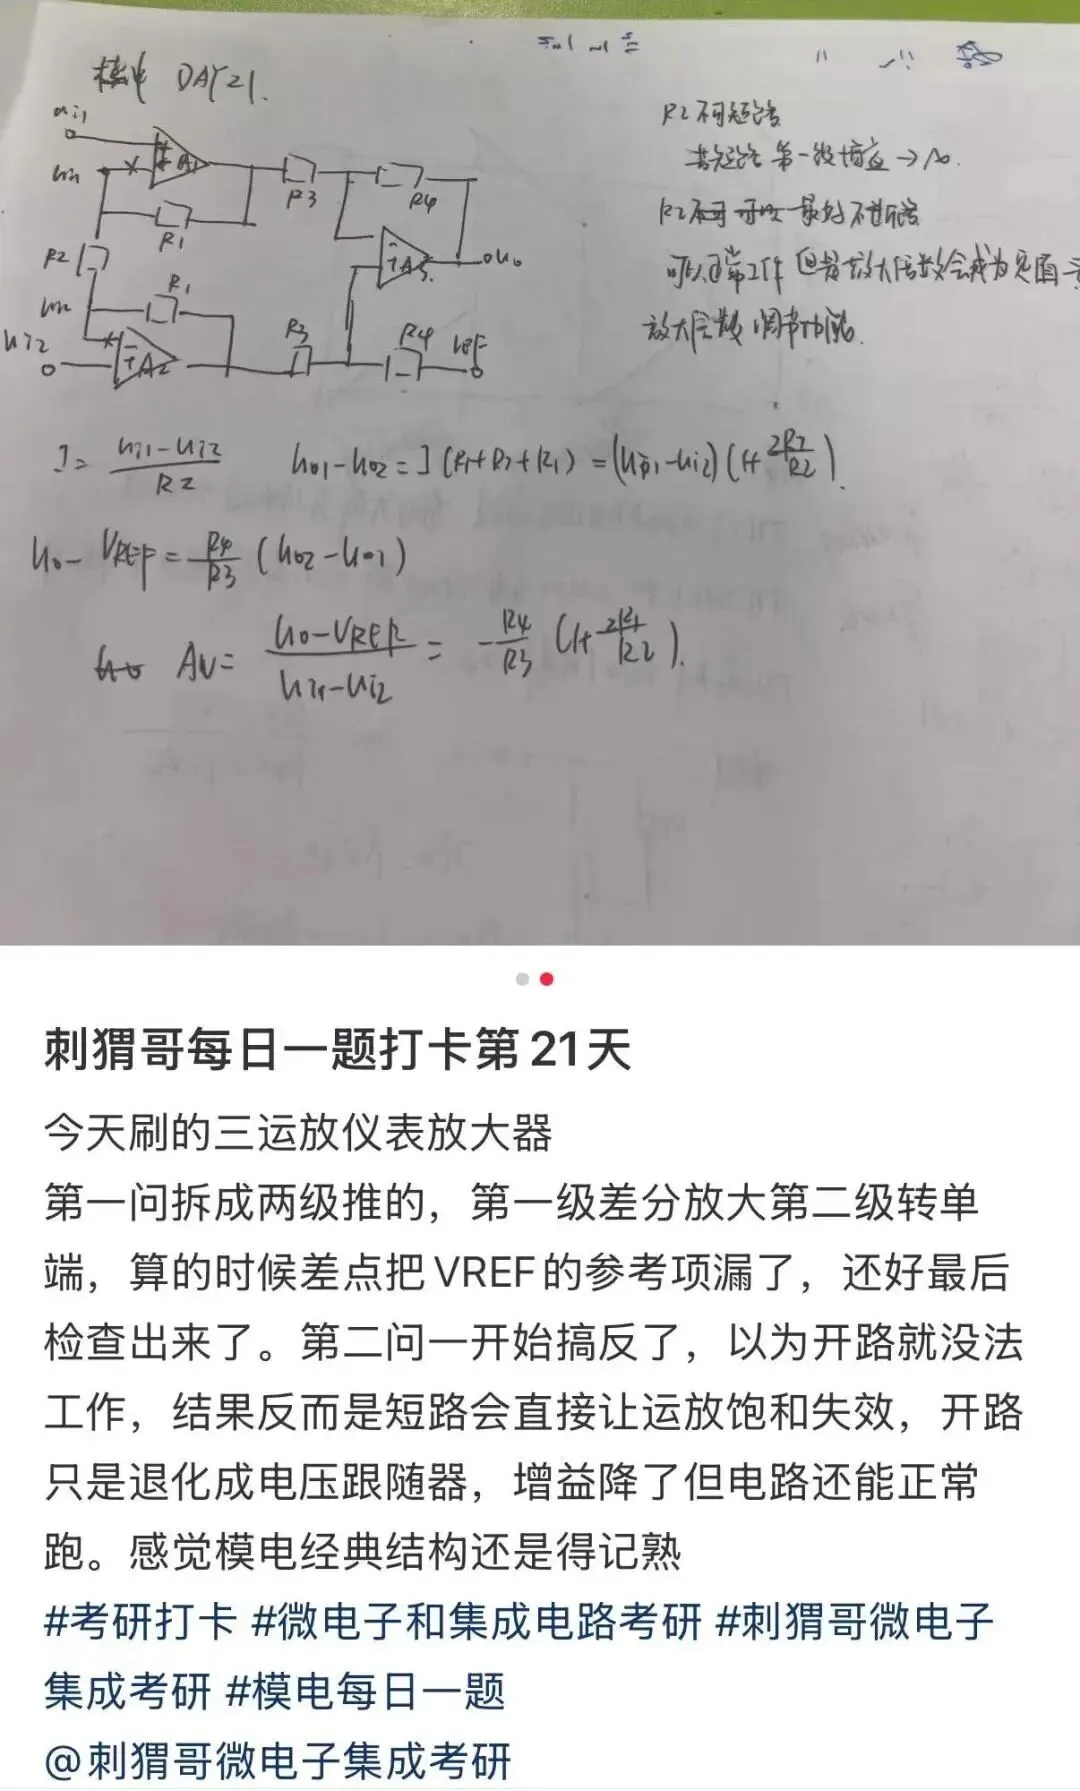 模电 DAY21.
ui1
A1
R3
R4
R1
R2
A3
uo
R1
ui2
A2
R3
R4
VREF
R2不可短路
若短路 第一级增益→∞.
R2 最好不开路
可以正常工作 但是放大倍数会成为
放大倍数 调节功能.
I = (ui1-ui2)/R2 uo1-uo2 = I(R1+R2+R1) = (ui1-ui2)(1+
uo-VREF = R4/R3 (uo2-uo1)
Au = (uo-VREF)/(ui1-ui2) = -R4/R3 (1+2R1/R2).
刺猬哥每日一题打卡第21天
今天刷的三运放仪表放大器
第一问拆成两级推的，第一级差分放大第二级转单
端，算的时候差点把VREF的参考项漏了，还好最后
检查出来了。第二问一开始搞反了，以为开路就没法
工作，结果反而是短路会直接让运放饱和失效，开路
只是退化成电压跟随器，增益降了但电路还能正常
跑。感觉模电经典结构还是得记熟
#考研打卡 #微电子和集成电路考研 #刺猬哥微电子
集成考研 #模电每日一题
@刺猬哥微电子集成考研